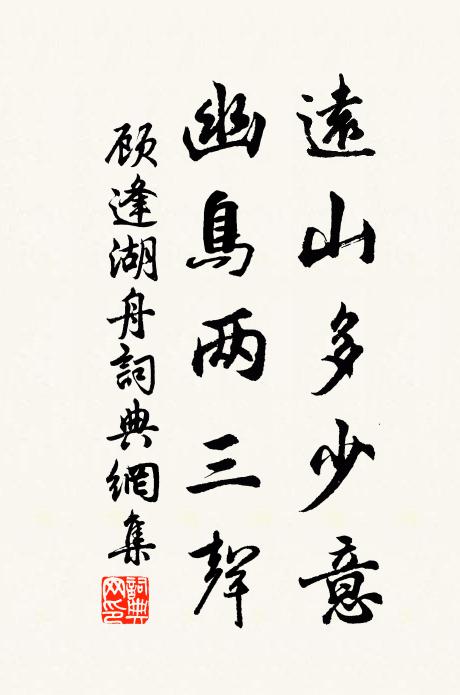 遠山多少意
幽鳥两三聲
顾逢湖舟詞典網集
詞典網印